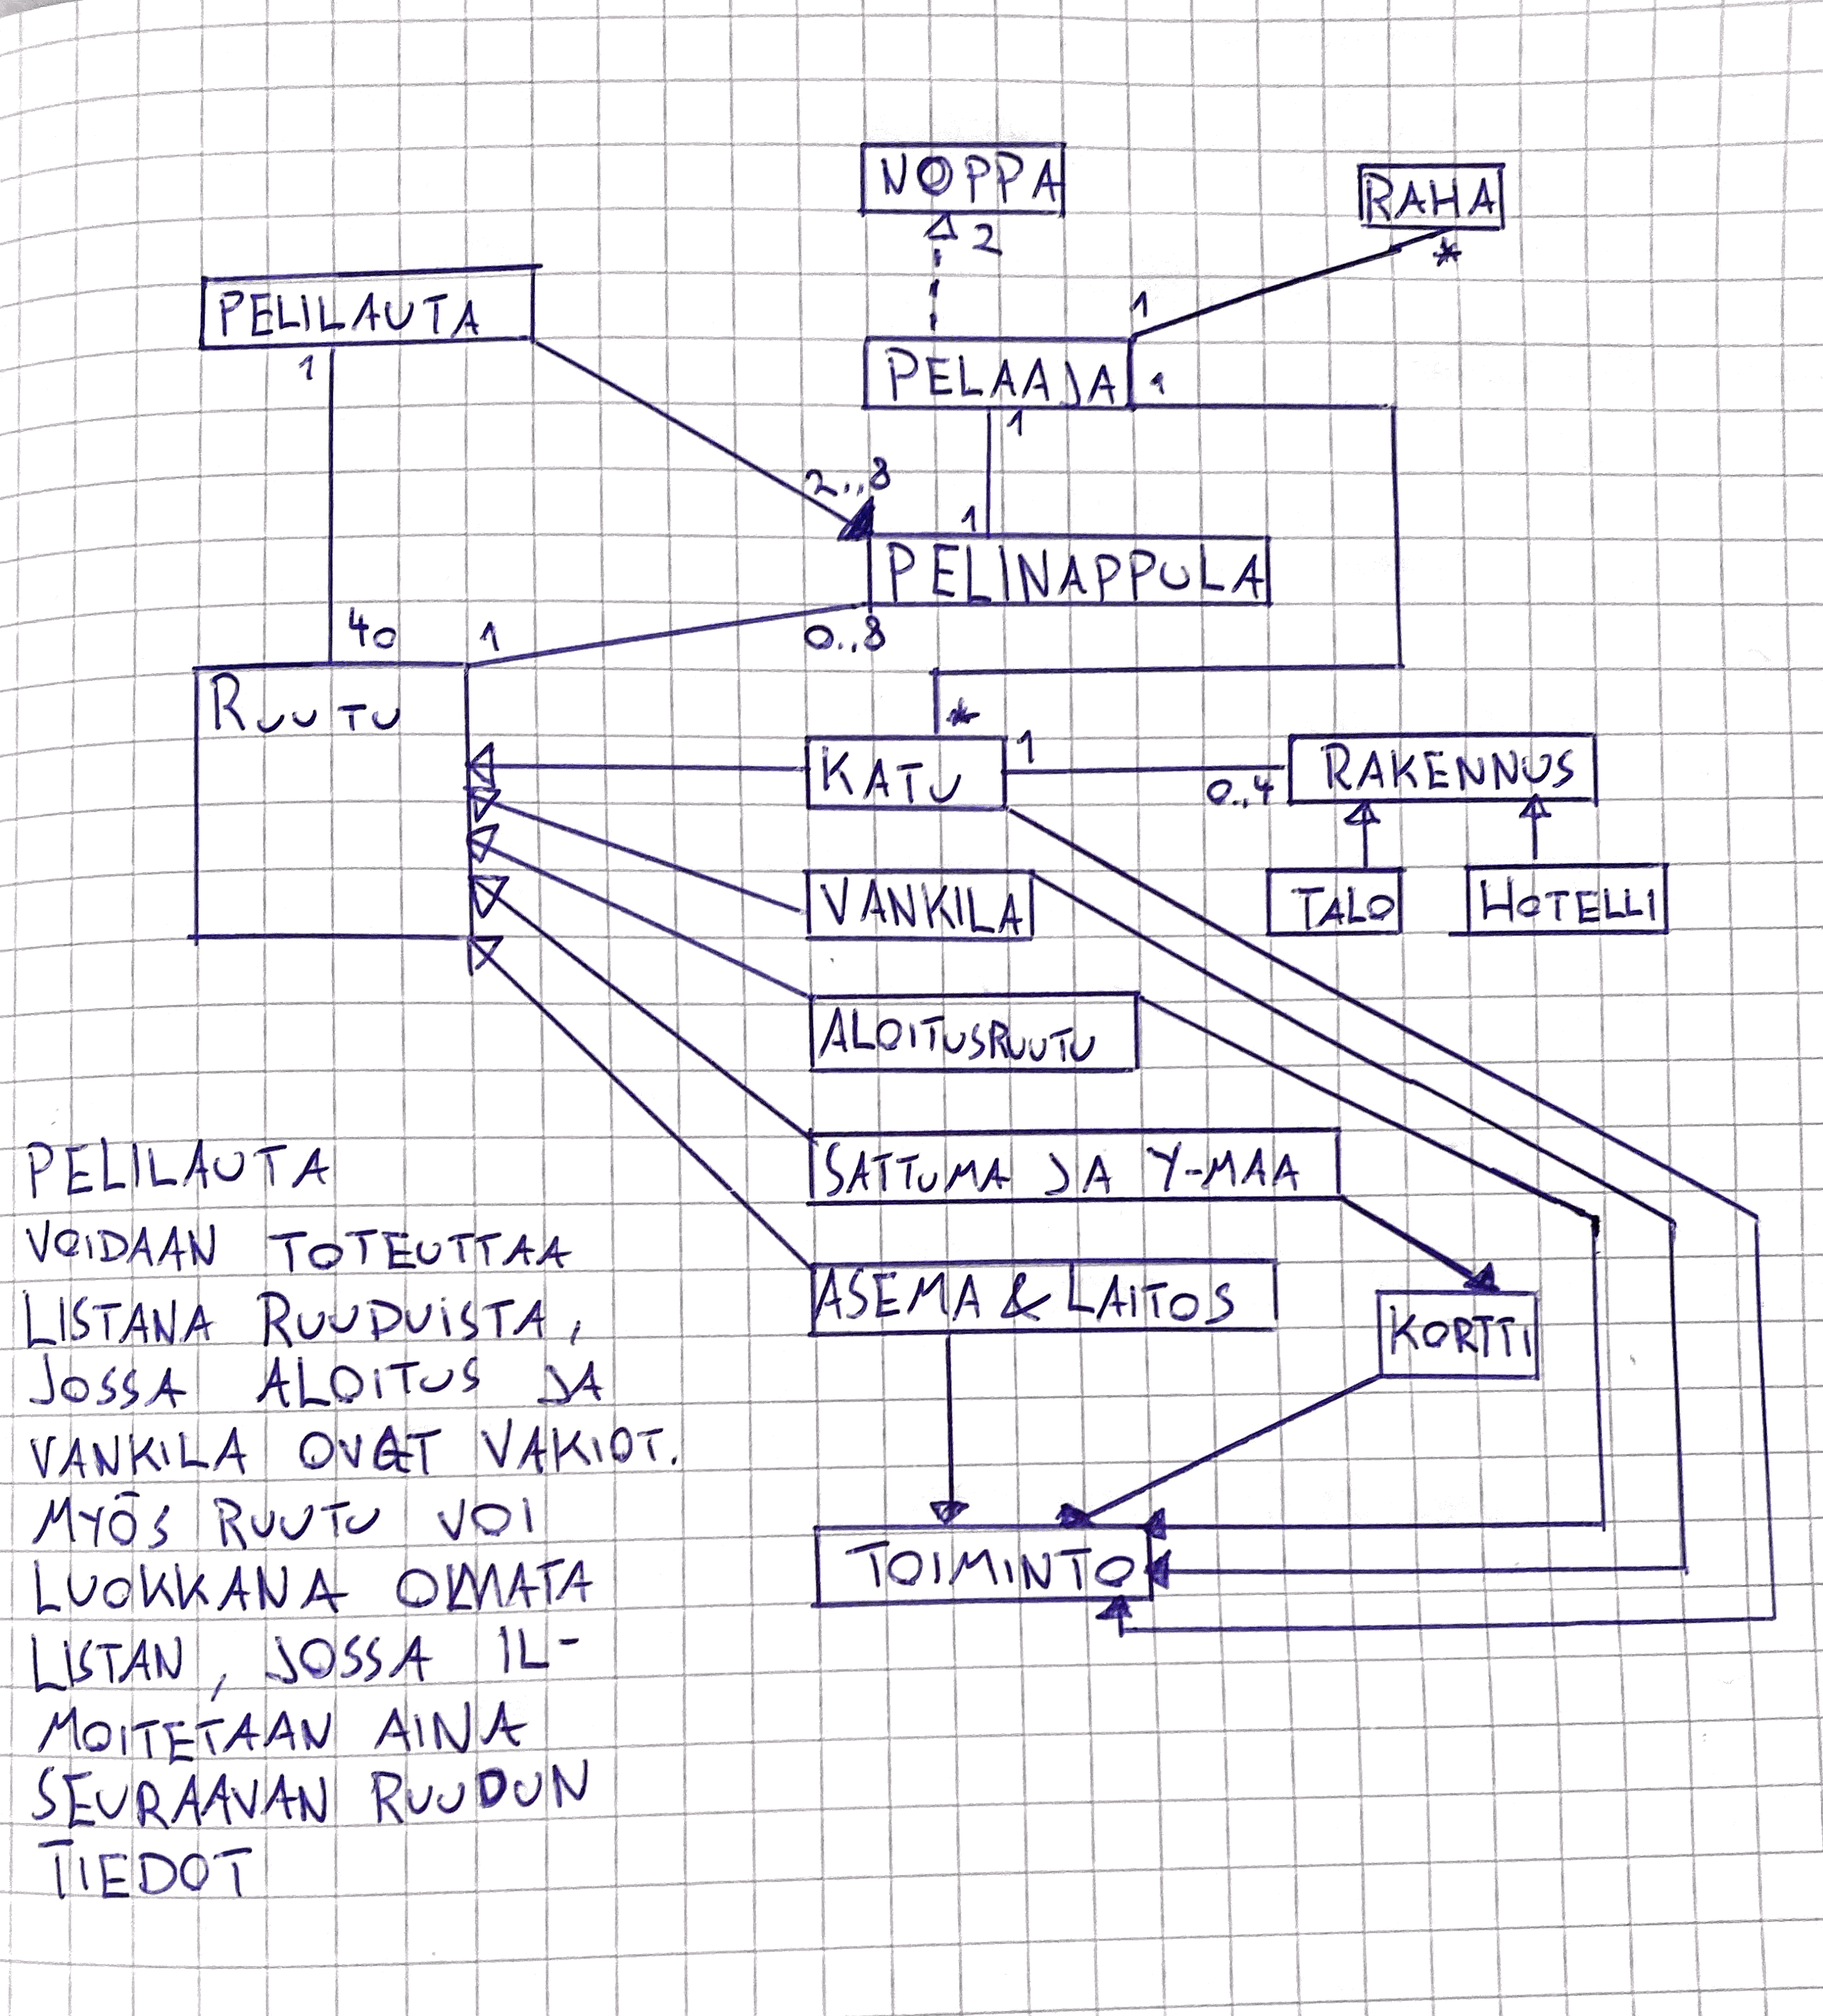 NOPPA
RAHA
2
*
PELILAUTA
1
1
PELAAJA
1
1
2..8
1
PELINAPPULA
40
1
0..8
RUUTU
*
KATU
1
0..4
RAKENNUS
VANKILA
TALO
HOTELLI
ALOITUSRUUTU
SATTUMA JA Y-MAA
ASEMA & LAITOS
KORTTI
TOIMINTO
PELILAUTA
VOIDAAN TOTEUTTAA
LISTANA RUUDUISTA,
JOSSA ALOITUS JA
VANKILA OVAT VAKIOT.
MYÖS RUUTU VOI
LUOKKANA OMATA
LISTAN, JOSSA IL-
MOITETAAN AINA
SEURAAVAN RUUDUN
TIEDOT